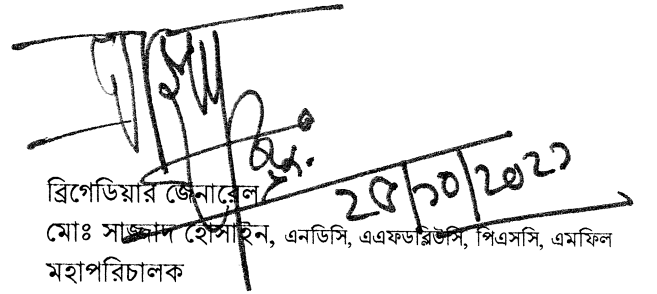 ২৫/১০/২০২১
ব্রিগেডিয়ার জেনারেল
মোঃ সাজ্জাদ হোসাইন, এনডিসি, এএফডব্লিউসি, পিএসসি, এমফিল
মহাপরিচালক